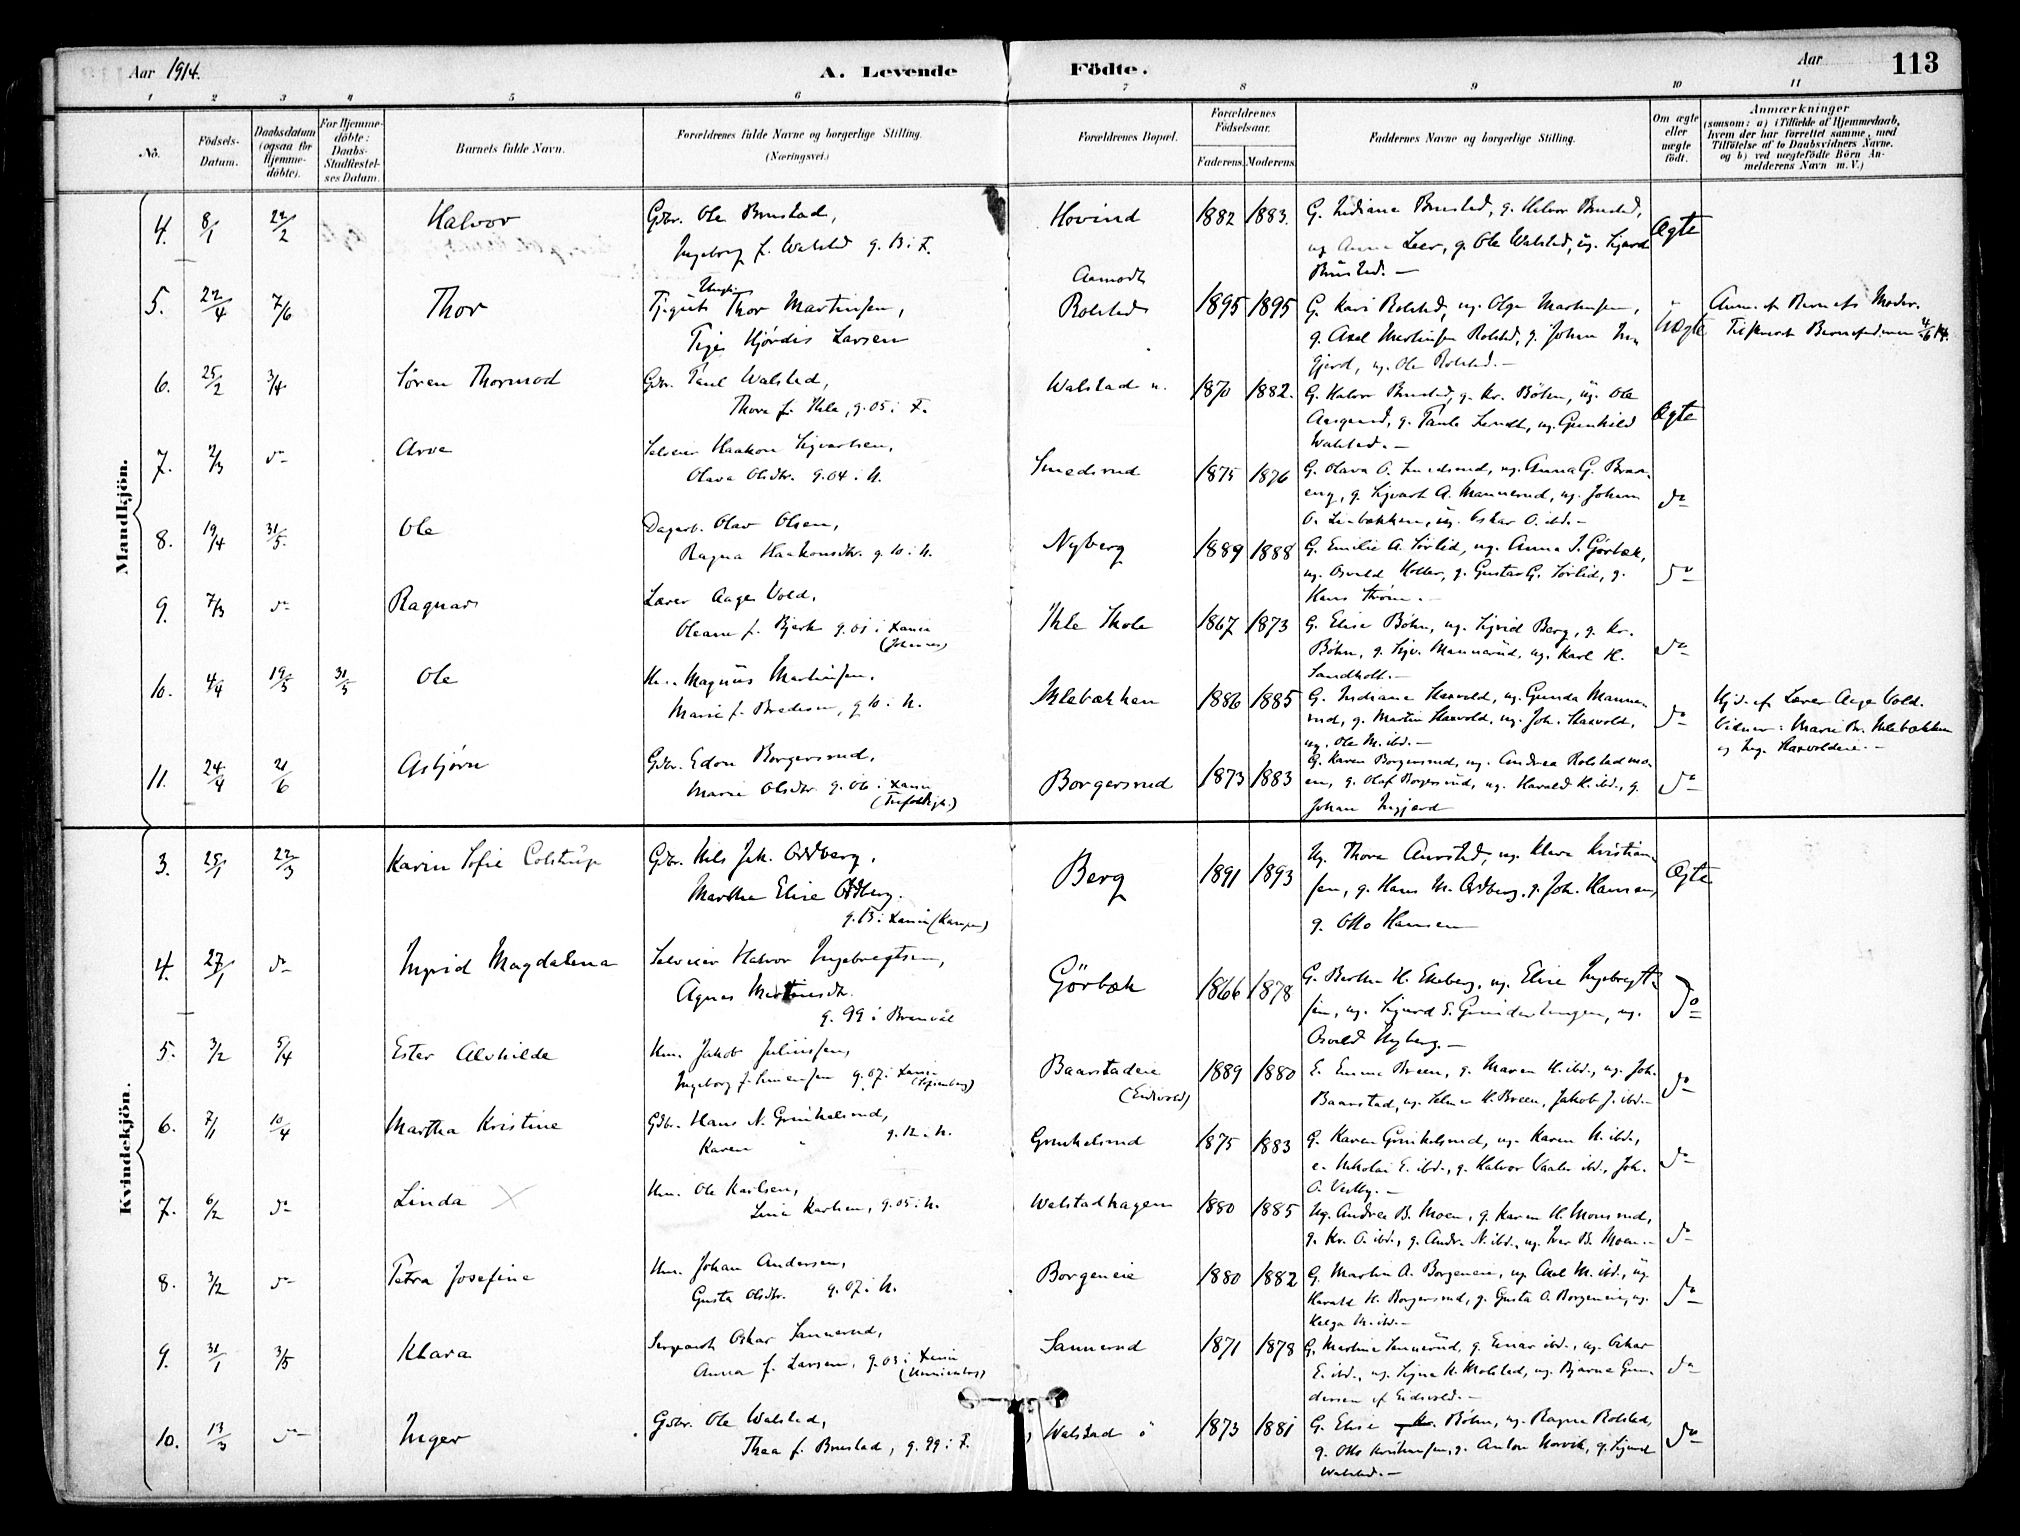 Aar 1914.
A. Levende Födte.
Aar
113
1 2 3 4 5 6 7 8 9 10 11
No.
Födsels-Datum.
Daabsdatum (ogsaa for Hjemme-döbte).
For Hjemme-döbte: Daabs-Stadfæstel-ses Datum.
Barnets fulde Navn.
Forældrenes fulde Navne og borgerlige Stilling.
(Næringsvei.)
Forældrenes Bopæl.
Forældrenes Födselsaar.
Faderens. Moderens.
Faddernes Navne og borgerlige Stilling.
Om ægte eller uægte födt.
Anmærkninger
(saasom: a) i Tilfælde af Hjemmedaab,
hvem der har forrettet samme, med
Tilföielse af to Daabsvidners Navne.
og b) ved uægtefödte Börn An-
melderens Navn m. V.)
Mandkjön.
4. 8/1 22/2 Halvor
Gdbr. Ole Brustad,
Ingeborg f. Walstad g. 13 i F.
Hovind 1882 1883.
G. Indiana Brustad, g. Halvor Brustad,
ug. Anna Leer, g. Ole Walstad, ug. Sigurd
Brustad. —
Ægte
5. 22/4 7/6 Thor
Ungk.
Tjgut Thor Martinsen,
Tige Hjørdis Larsen
Aamodt
Rolstad 1895 1895
G. Kari Rolstad, ug. Olga Martinsen,
g. Axel Martinsen Rolstad, g. Johan In-
gjerd, ug. Ole Rolstad. —
Uægte
Anm. af Barnets Moder.
6. 25/2 3/4 Søren Thormod
Gdbr. Paul Walstad,
Thora f. Ihle, g. 05 i F.
Walstad n. 1870 1882.
G. Halvor Brustad, g. Kr. Bøhn, ug. Ole
Aasgaard, g. Paula Lundt, ug. Gunhild
Walstad. —
Ægte
7. 2/3 do Arve
Selveier Haakon Sigvartsen,
Olava Olsdtr. g. 04 i N.
Smedsrud 1875 1876
G. Olava O. Smedsrud, ug. Anna G. Braa-
eng, g. Sigvart A. Mannerud, ug. Johan
O. Linbækken, ug. Oskar O. ibd. —
do
8. 19/4 31/5. Ole
Dagarb. Olav Olsen,
Ragna Haakonsdtr. g. 10 i N.
Nyberg 1889 1888
G. Emilie A. Sørlid, ug. Anna J. Gørbæk,
ug. Osvald Holter, g. Gustav G. Sørlid, g.
Hans Strøm. —
do
9. 7/3 do Ragnar
Lærer Aage Vold,
Oleane f. Bjerk g. 01 i Xania
(Johannes)
Ihle Skole 1867 1873
G. Elise Bøhn, ug. Sigrid Berg, g. Kr.
Bøhn, g. Sigv. Mannerud, ug. Karl H.
Sandholt. —
do
10. 4/4 19/5 31/5 Ole
Hm. Magnus Martinsen,
Marie f. Bredesen, g. 10 i N.
Ihlebækken 1886 1885
G. Indiana Haavold, ug. Gunda Manne-
rud, g. Martin Haavold, ug. Joh. Haavold,
ug. Ole M. ibd. —
do
Hjd. af Lærer Aage Vold.
Vidner: Marie Br. Ihlebækken
og Ing. Haavoldeie. —
11. 24/4 21/6 Asbjørn
Gdbr. Edon Borgersrud,
Marie Olsdtr. g. 06 i Xania
(Trefoldigh.)
Borgersrud 1873 1883
G. Karen Borgersrud, ug. Andrea Rolstadmo-
en, g. Olaf Borgersrud, ug. Harald K. ibd., g.
Johan Ingjerd
do
Kvindekjön.
3. 25/1 22/3 Karin Sofie Colstrup
Gdbr. Nils Joh. Oddberg,
Martha Elise Oddberg.
g. 13 i Xania (Kampen)
Berg 1891 1893
Ug. Thora Aurstad, ug. Klara Kristian-
sen, g. Hans M. Oddberg, g. Joh. Hansen,
g. Otto Hansen
Ægte
4. 27/1 do Ingrid Magdalena
Selveier Halvor Ingebregtsen,
Agnes Martinsdtr.
g. 99 i Brenvål
Görbæk 1866 1878
G. Berthe H. Ekeberg, ug. Elise Ingebregt-
sen, ug. Sigurd E. Grindertungen, ug.
Osvald Nyberg. —
do
5. 3/2 5/4 Ester Alvhilde
Hm. Jakob Juliussen,
Ingeborg f. Simensen g. 07 i Xania
Baarstadeie
(Eidsvold)
1889 1880
E. Emma Breen, g. Maren H. ibd., ug. Joh.
Baarstad, ug. Selmer H. Breen, Jakob J. ibd. —
do
6. 7/1 10/4 Martha Kristine
Gdbr. Hans N. Grinkelsrud,
Karen " g. 12 i N.
Grinkelsrud 1875 1883
G. Karen Grinkelsrud, ug. Karen N. ibd.,
e. Nikolai E. ibd., g. Halvor Vaaler ibd., Joh.
O. Vestby. —
do
7. 6/2 do Linda ×
Hm. Ole Karlsen,
Lina Karlsen, g. 05 i N.
Walstadhagen 1880 1885
Ug. Andrea B. Moen, g. Karen H. Monsrud,
g. Kr. O. ibd., g. Andr. N. ibd., ug. Iver B. Moen. —
do
8. 3/2 do Petra Josefine
Hm. Johan Andersen,
Gusta Olsdtr. g. 07 i N.
Borgeneie 1880 1882
G. Martin A. Borgeneie, ug. Axel M. ibd., ug.
Harald K. Borgersrud, g. Gusta O. Borgeneie, ug.
Helga M. ibd. —
do
9. 31/1 3/5 Klara
Sergeant Oskar Sannerud,
Anna f. Larsen, g. 03 i Xania
Sannerud 1871 1878
G. Martine Sannerud, g. Einar ibd., ug. Oskar
E. ibd., ug. Signe H. Molstad, ug. Bjarne Gun-
dersen af Eidsvold. —
do
10. 13/3 do Inger
Gdbr. Ole Walstad,
Thea f. Brustad, g. 99 i F.
Walstad ö 1873 1881
G. Elise Bøhn, ug. Ragna Rolstad,
g. Otto Kristiansen, g. Anton Narvik, g. Sigurd
Walstad. —
do